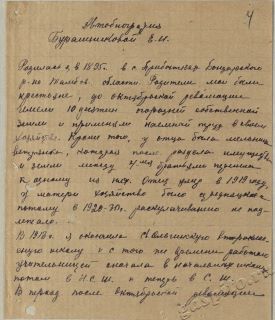 4
Автобиография
Бурашниковой Е. И.
Родилась я в 1895г. в с. Бондарского
р-на Тамбов. области. Родители мои были
крестьяне, до октябрьской революции
имели 10 десятин собственной
земли и применяли наемный труд в своем
хозяйстве. Кроме того, у отца была мельница
ветрянка, которая после раздела имущества
и земли между братьями перешла
к одному из них. Отец умер в 1919 году,
у матери хозяйство было середняцкое
потому в 1929-30г. раскулачиванию не под-
лежало.
В 1913г. я окончила второклас-
сную школу и с того же времени работаю
учительницей сначала в начальных школах
потом в Н.С.Ш. и теперь в С. Ш.
В период после октябрьской революции